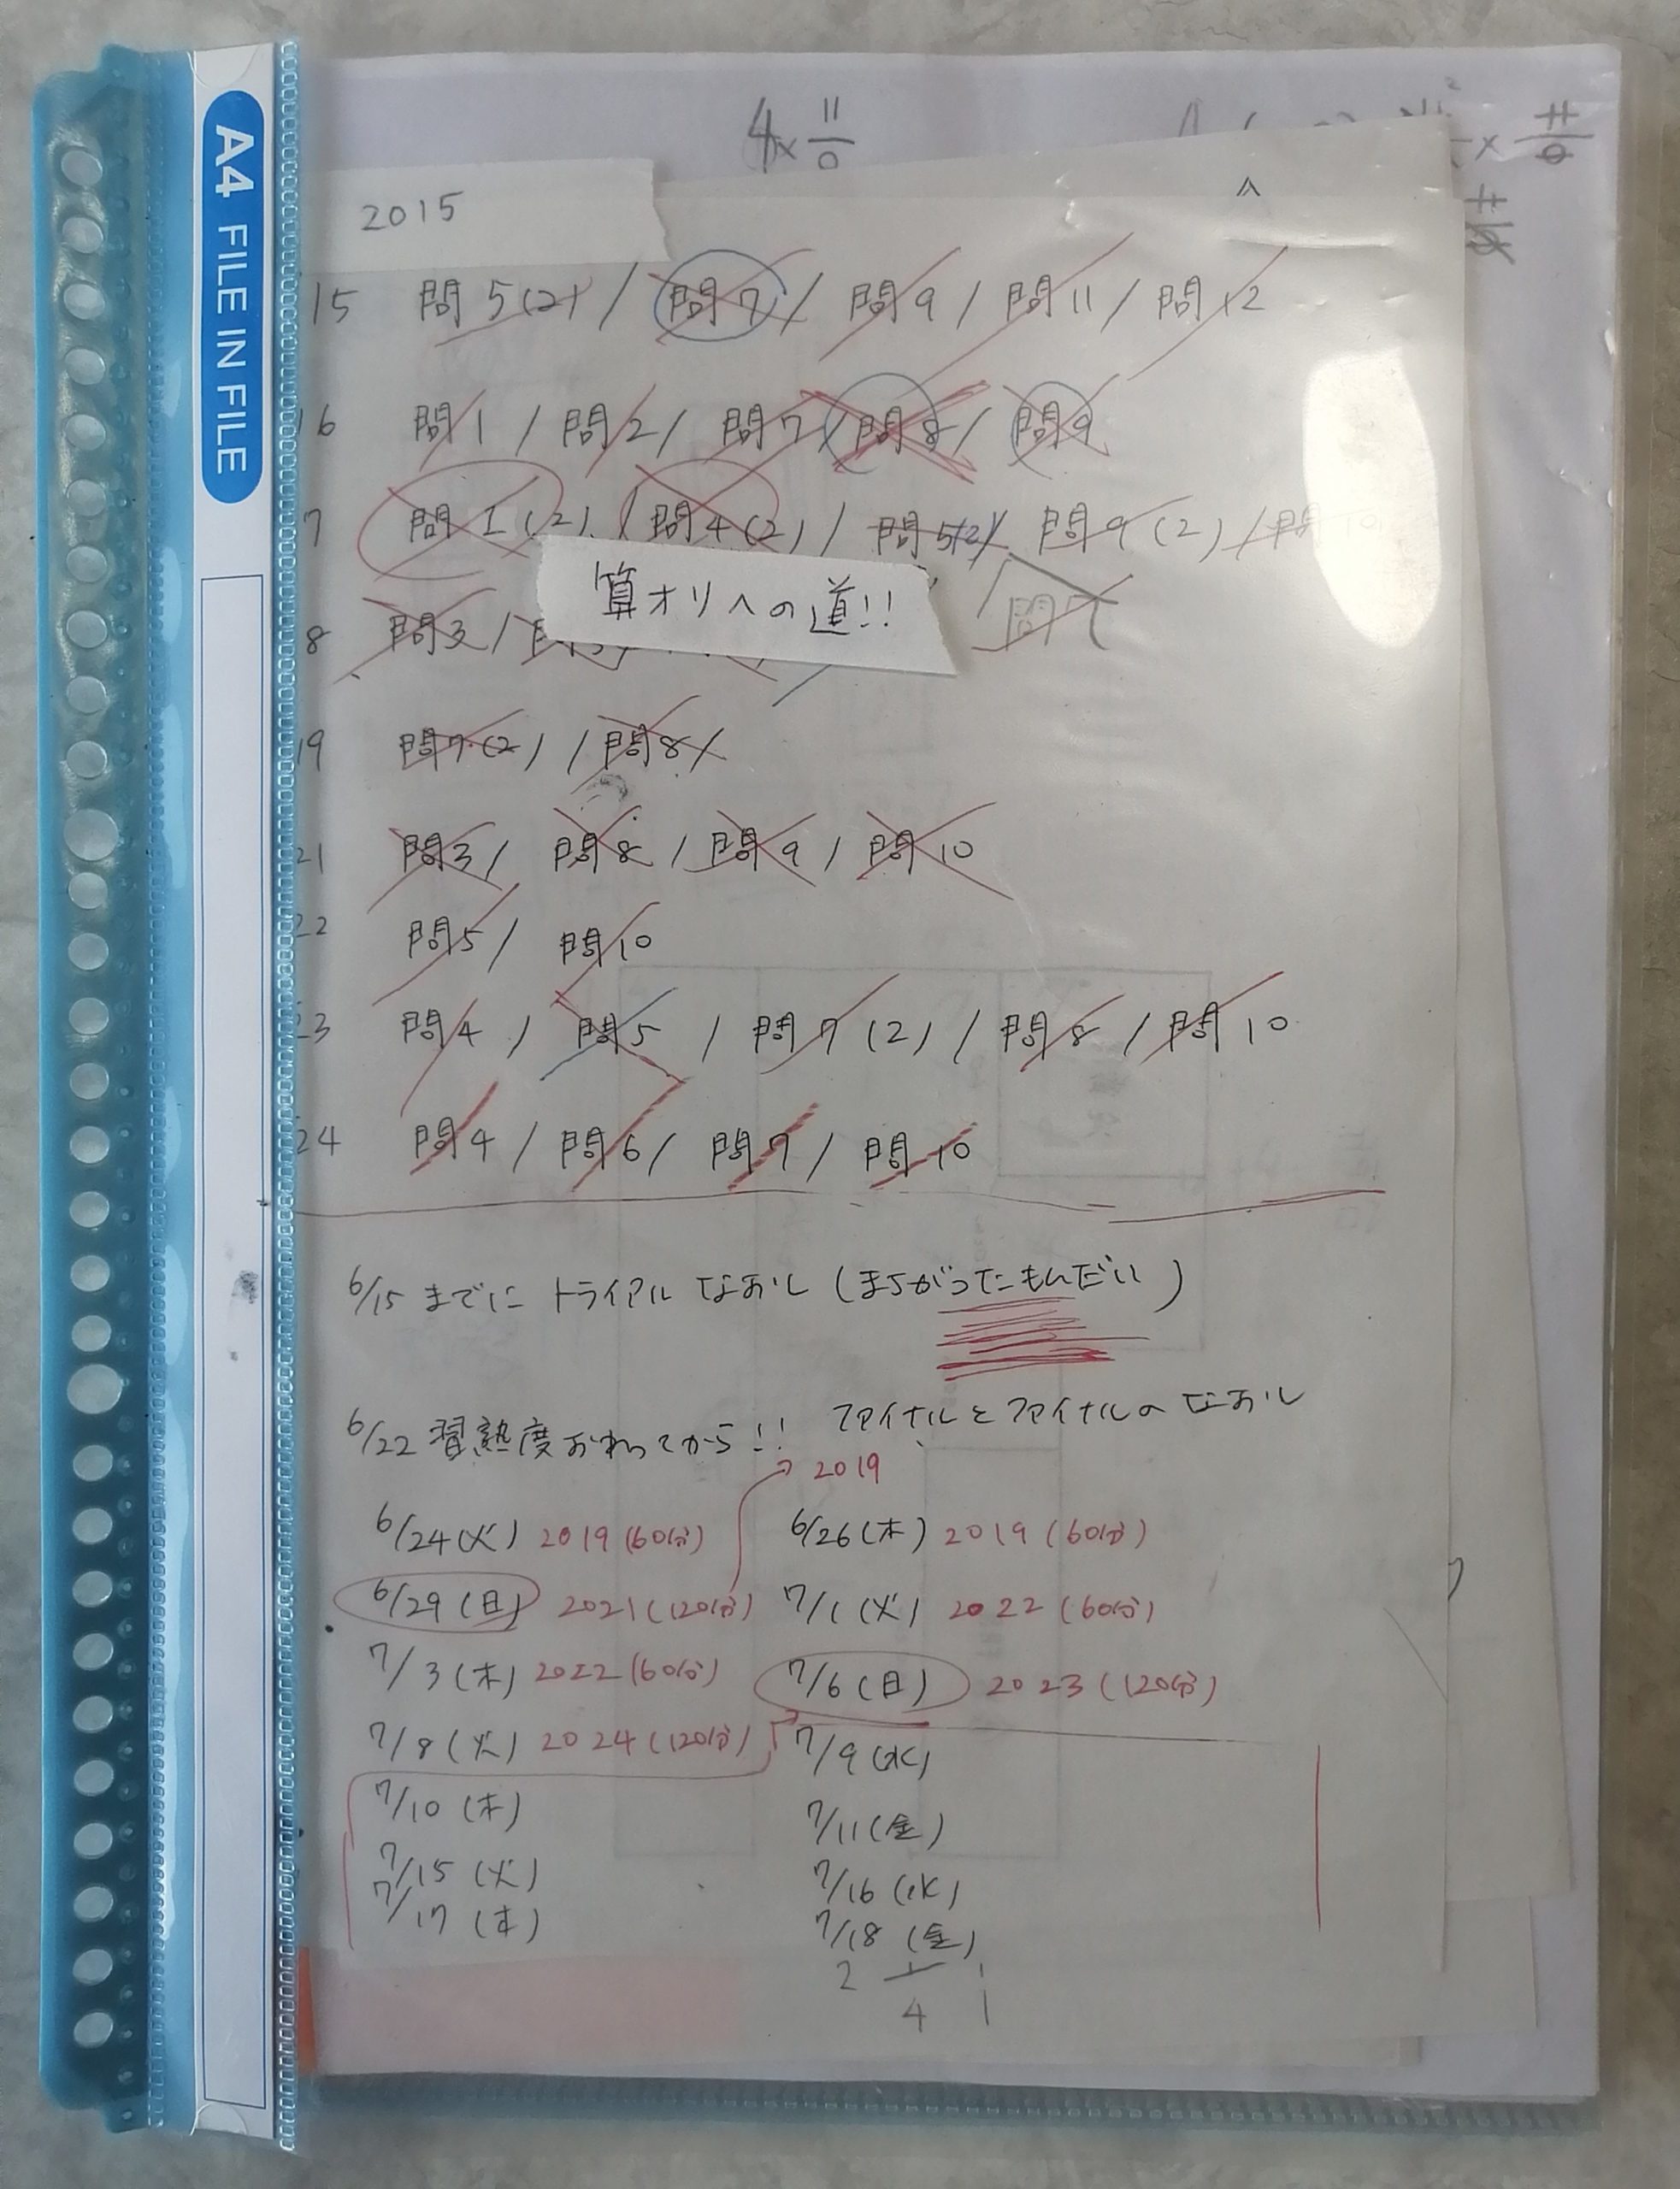 A4 FILE IN FILE
4× 11/0
2015
15 問5(2) / 問7 / 問9 / 問11 / 問12
16 問1 / 問2 / 問7 / 問8 / 問9
7 問1(2) / 問4(2) / 問5(2) / 問9(2) / 問10
算オリへの道!!
8 問3 / 問7
19 問7(2) / 問8
21 問3 / 問8 / 問9 / 問10
22 問5 / 問10
23 問4 / 問5 / 問7(2) / 問8 / 問10
24 問4 / 問6 / 問7 / 問10
6/15 までに トライアル なおし (まちがったもんだい)
6/22 習熟度おわってから!! ファイナルとファイナルの なおし
2019
6/24(火) 2019(60分) 6/26(木) 2019(60分)
6/29(日) 2021(120分) 7/1(火) 2022(60分)
7/3(木) 2022(60分) 7/6(日) 2023(120分)
7/8(火) 2024(120分) 7/9(水)
7/10(木) 7/11(金)
7/15(火) 7/16(水)
7/17(木) 7/18(金)
2 1
4 1